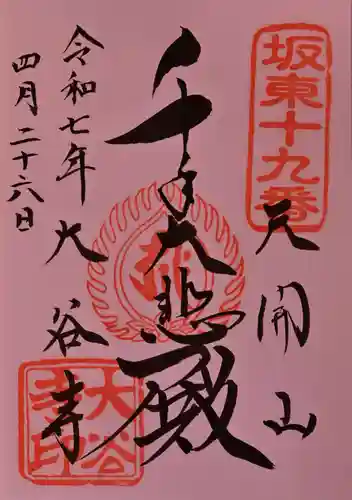 坂東十九番
天開山
千手大悲殿
大谷寺
令和七年
四月二十六日
大谷寺印